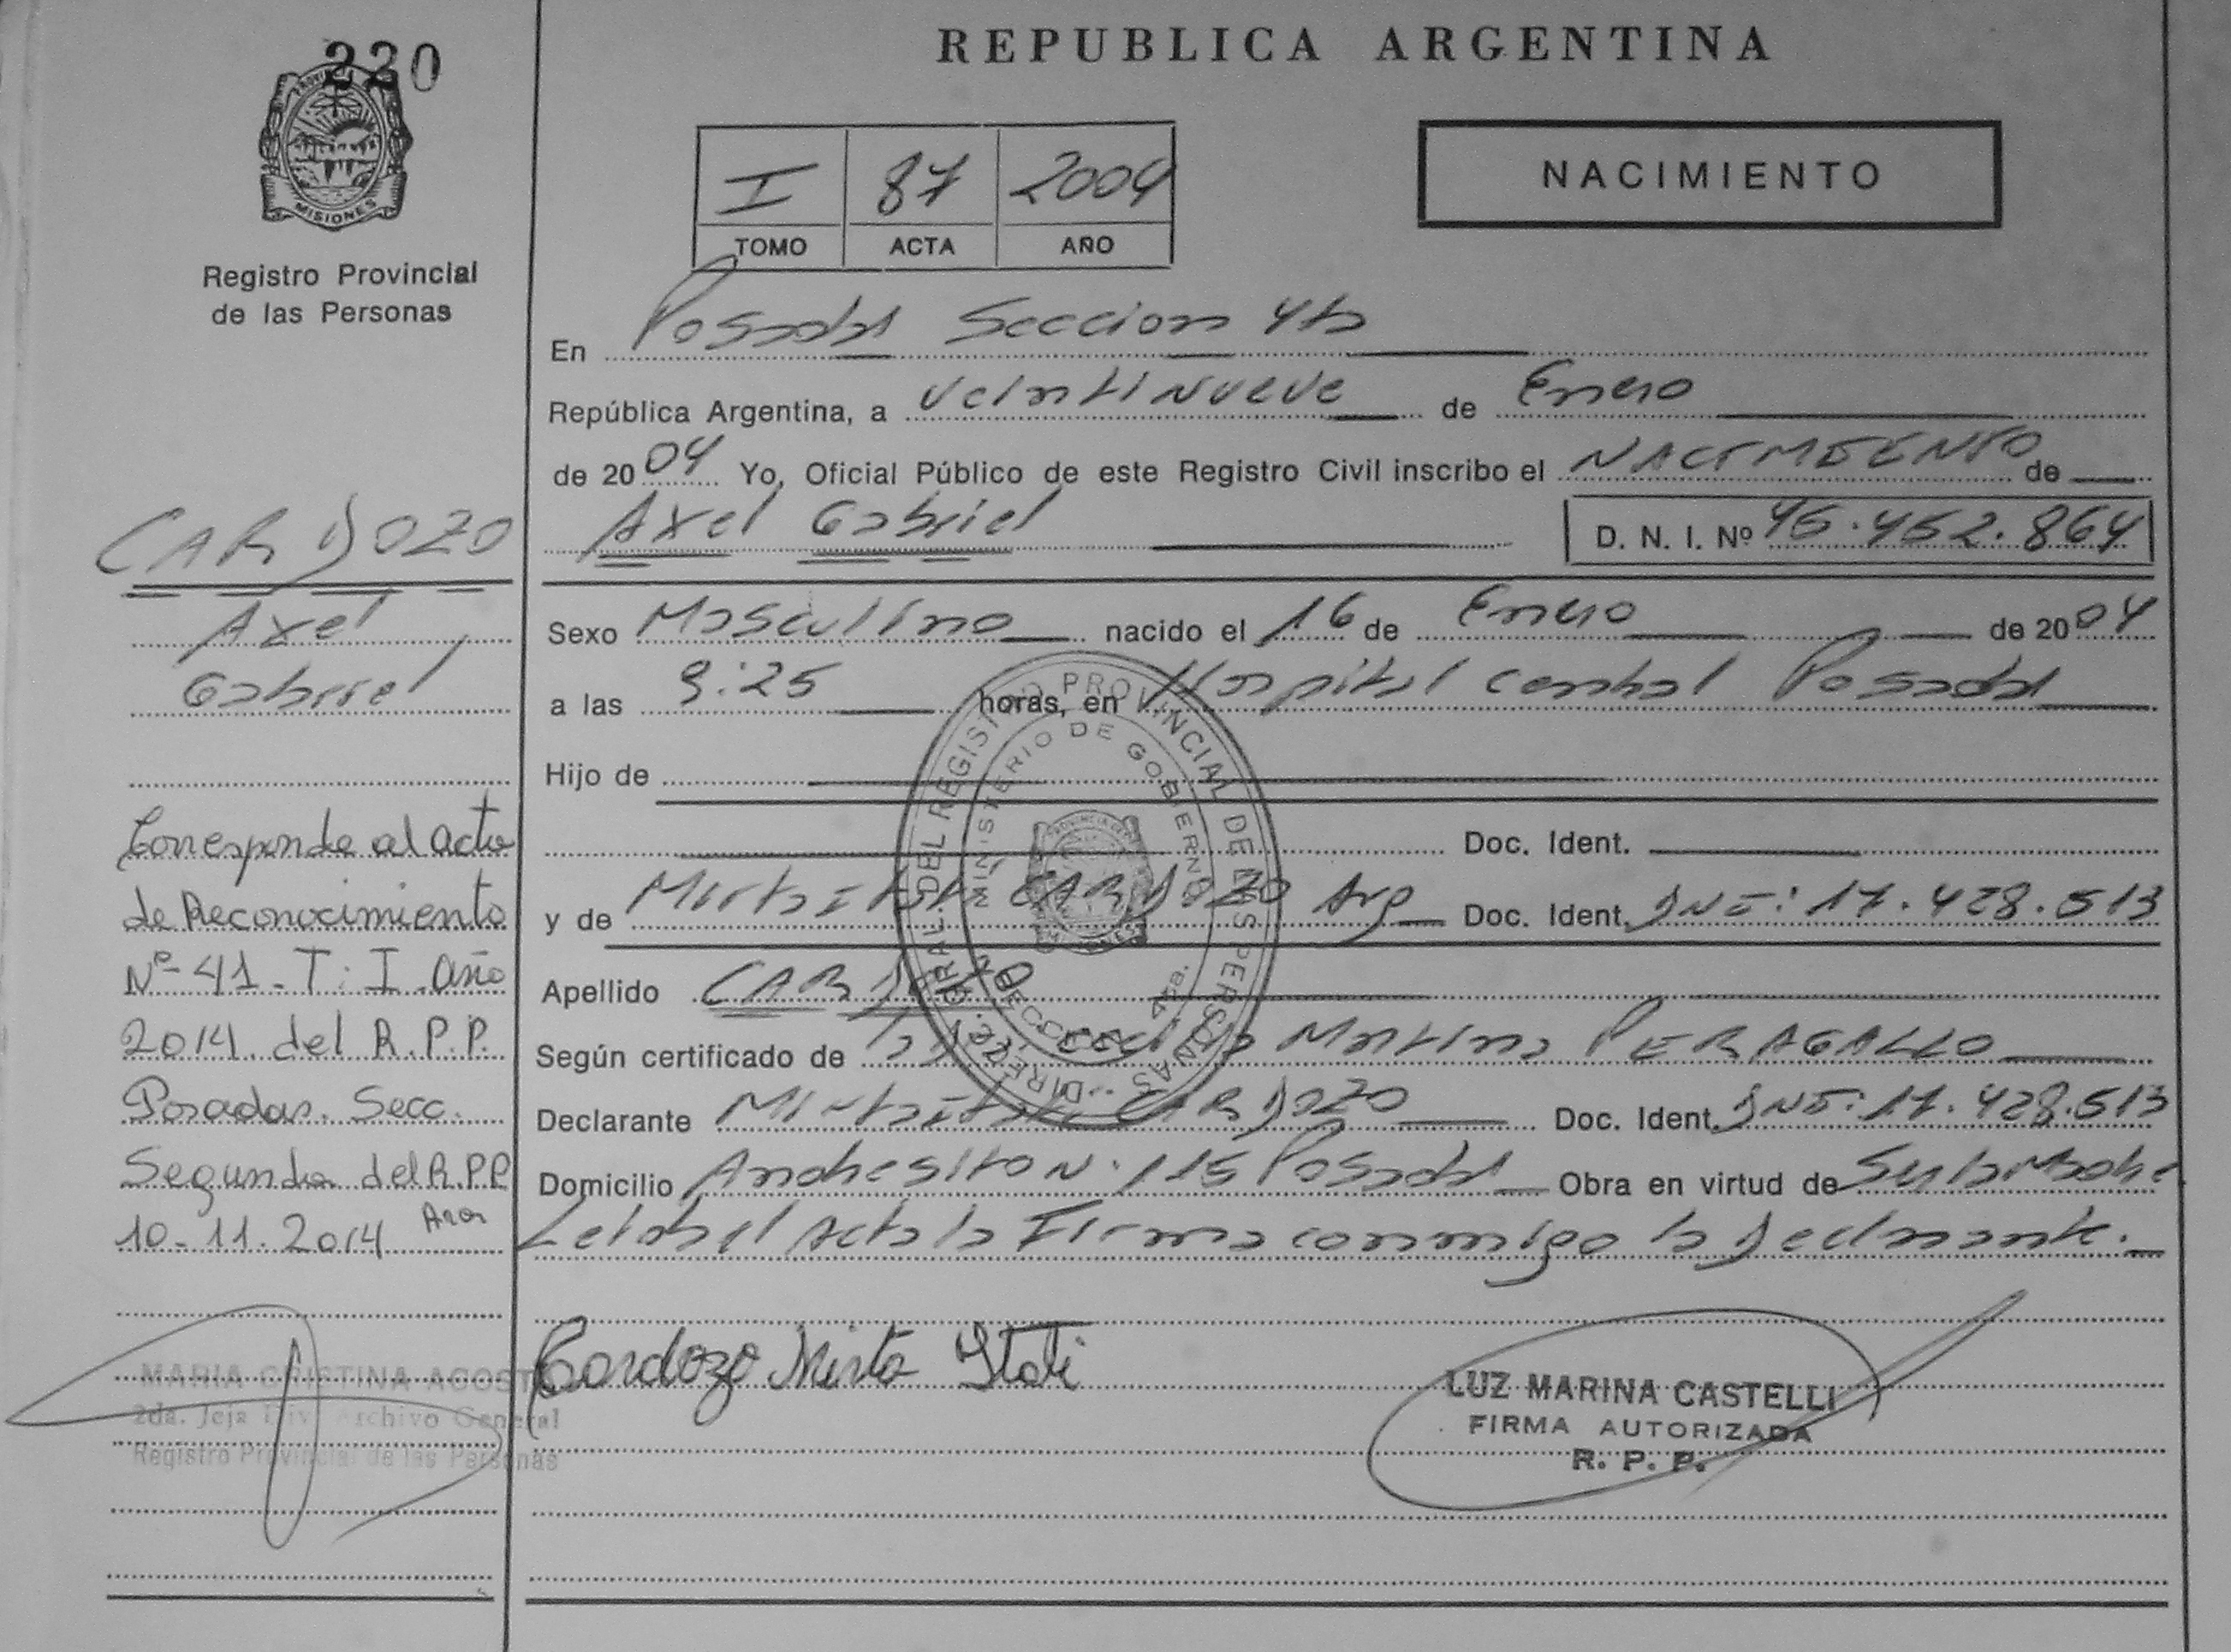 220
MISIONES
Registro Provincial
de las Personas
CARDOZO
Axel
Gabriel
Corresponde al acta
de Reconocimiento
Nº 41 - T: I. Año
2014. del R.P.P.
Posadas. Secc.
Segunda del R.P.P
10-11.2014
MARIA CRISTINA AGOST
2da. Jefa Div. Archivo General
Registro Provincial de las Personas
REPUBLICA ARGENTINA
I 87 2004
TOMO ACTA AÑO
NACIMIENTO
En Posadas Seccion 4ta
República Argentina, a Veintinueve de Enero
de 2004 Yo, Oficial Público de este Registro Civil inscribo el NACIMIENTO de
Axel Gabriel D. N. I. Nº 45.452.864
Sexo Masculino nacido el 16 de Enero de 2004
a las 9:25 horas, en Hospital central Posadas
Hijo de
Doc. Ident.
y de Mirta Itatí CARDOZO Arg Doc. Ident. DNI: 17.428.513
Apellido CARDOZO
Según certificado de Martina PERAGALLO
Declarante Mirta Itatí CARDOZO Doc. Ident. DNI: 17.428.513
Domicilio Andresito N. 115 Posadas Obra en virtud de Su la Madre
Leida el Acta la Firma conmigo la Declarante.
Cardozo Mirta Itati
LUZ MARINA CASTELLI
FIRMA AUTORIZADA
R. P. P.
DIREC. GRAL. DEL REGISTRO PROVINCIAL DE LAS PERSONAS
MINISTERIO DE GOBIERNO